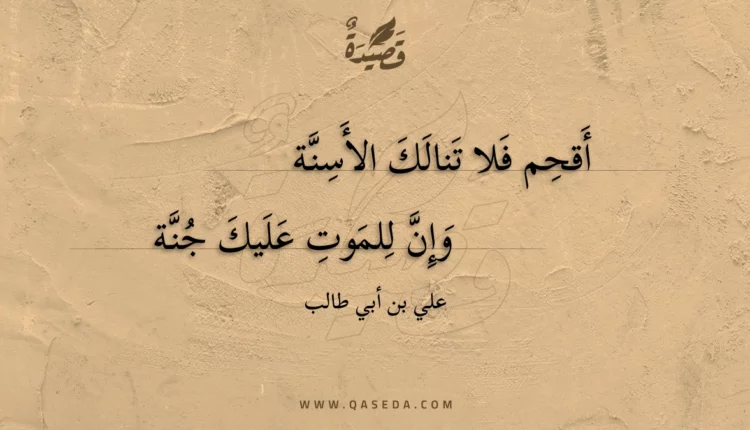 قَصِيْدَةٌ
أَقحِم فَلا تَنالَكَ الأَسِنَّة
وَإِنَّ لِلمَوتِ عَلَيكَ جُنَّة
علي بن أبي طالب
WWW.QASEDA.COM